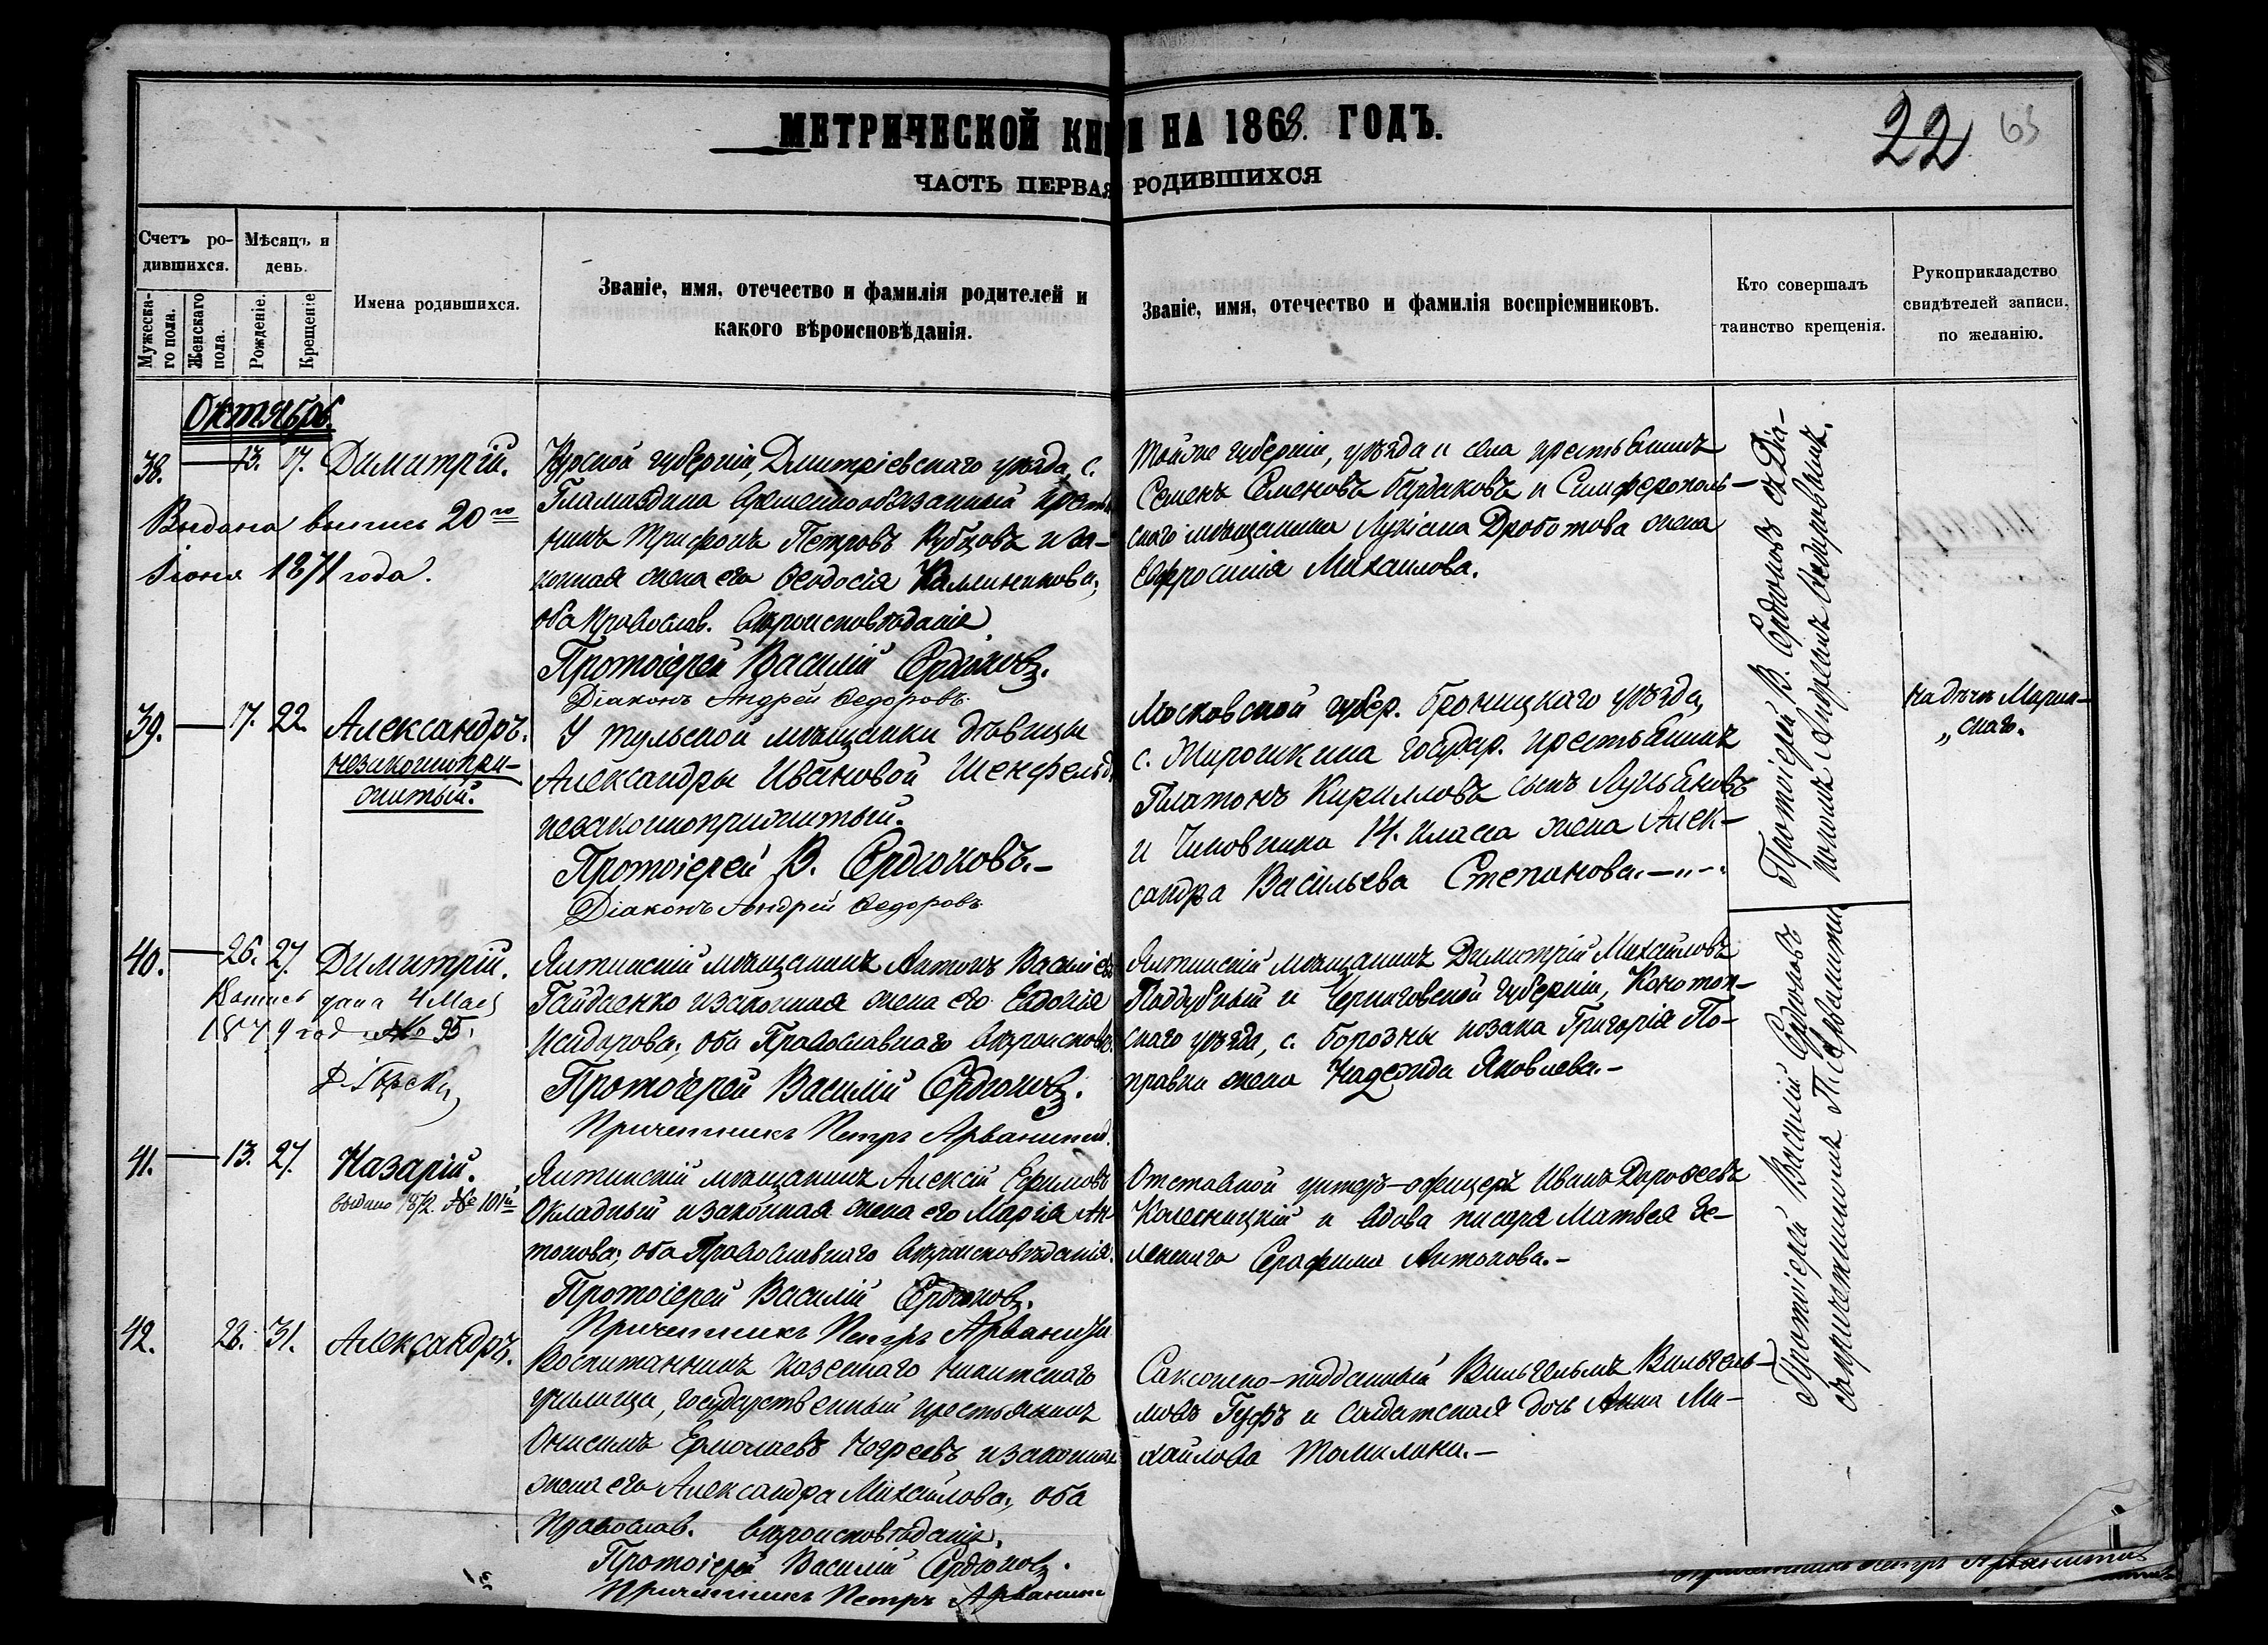 МЕТРИЧЕСКОЙ КНИГИ НА 1868. ГОДЪ.
22 63
ЧАСТЬ ПЕРВАЯ РОДИВШИХСЯ
Счетъ ро-
дившихся.
Мужеска-
го пола.
Женскаго
пола.
Мѣсяцъ и
день.
Рожденіе.
Крещеніе
Имена родившихся.
Званіе, имя, отечество и фамилія родителей и
какого вѣроисповѣданія.
Званіе, имя, отечество и фамилія воспріемниковъ.
Кто совершалъ
таинство крещенія.
Рукоприкладство
свидѣтелей записи,
по желанію.
Октябрь.
38. — 13. 17. Димитрій.
Выдана выпись 20го
Іюня 1871 года.
Курской губерніи, Дмитріевскаго уѣзда, с.
временнообязанный кресть
нинъ Трифонъ Петровъ Рубцовъ и за-
конная жена его Ѳеодосія Калинникова,
оба Православ. вѣроисповѣданія
Протоіерей Василій Сердюковъ.
Діаконъ Андрей Ѳедоровъ.
Тойже губерніи, уѣзда и села крестьянинъ
Семенъ Семеновъ Бурдаковъ и Симферополь-
скаго мѣщанина Лукіана Дроботова жена
Евфросинія Михаилова.
39. — 17. 22. Александръ.
незаконнопри-
житый.
У тульской мѣщанки дѣвицы
Александры Ивановой Шенфельдъ
незаконноприжитый.
Протоіерей В. Сердюковъ.—
Діаконъ Андрей Ѳедоровъ
Московской губер. Броницкаго уѣзда,
с. Жирошкина государ. крестьянинъ
Платонъ Кирилловъ сынъ Лукьяновъ
и Чиновника 14. класса жена Алек-
сандра Васильева Степанова.—"—
Протоіерей В. Сердюковъ съ Діа-
кономъ Андреемъ Ѳедоровымъ.
40. — 26. 27. Димитрій.
Копись дана 4 Мая
1874 год № 95.
Ялтинскій мѣщанинъ Антонъ Василіевъ
Гайдаенко и законная жена его Евдокія
Исидорова, оба Православнаго вѣроисповѣ.
Протоіерей Василій Сердюковъ.
Причетникъ Петръ Арванити.
Ялтинскій мѣщанинъ Димитрій Михайловъ
Поддубный и Черниговской губерніи, Конотоп-
скаго уѣзда, с. Борозны козака Григорія По-
правки жена Надежда Яковлева.—
41. — 13. 27. Назарій.
выдано 1872. № 101й
Ялтинскій мѣщанинъ Алексій Ефимовъ
Окладный и законная жена его Марія Ан-
тонова, оба Православнаго вѣроисповѣданія.
Протоіерей Василій Сердюковъ.
Причетникъ Петръ Арванити
Отставной унтеръ-офицеръ Иванъ Дороѳеевъ
Колесницкій и вдова писаря Матвея Зе-
ленскаго Серафима Антонова.—
42. 28. 31. Александръ.
Воспитанникъ казеннаго Никитскаго
училища, государственный крестьянинъ
Онисимъ Ермолаевъ и законная
жена его Александра Михайлова, оба
Православ. вѣроисповѣданія.
Протоіерей Василій Сердюковъ.
Причетникъ Петръ Арванити
Саксонско-подданный Вильгельмъ Вильгель-
мовъ Гуфъ и солдатская дочь Анна Ми-
хайлова Томилина.—
Протоіерей Василій Сердюковъ
съ причетникомъ П. Арванити
Причетникъ Петръ Арванити